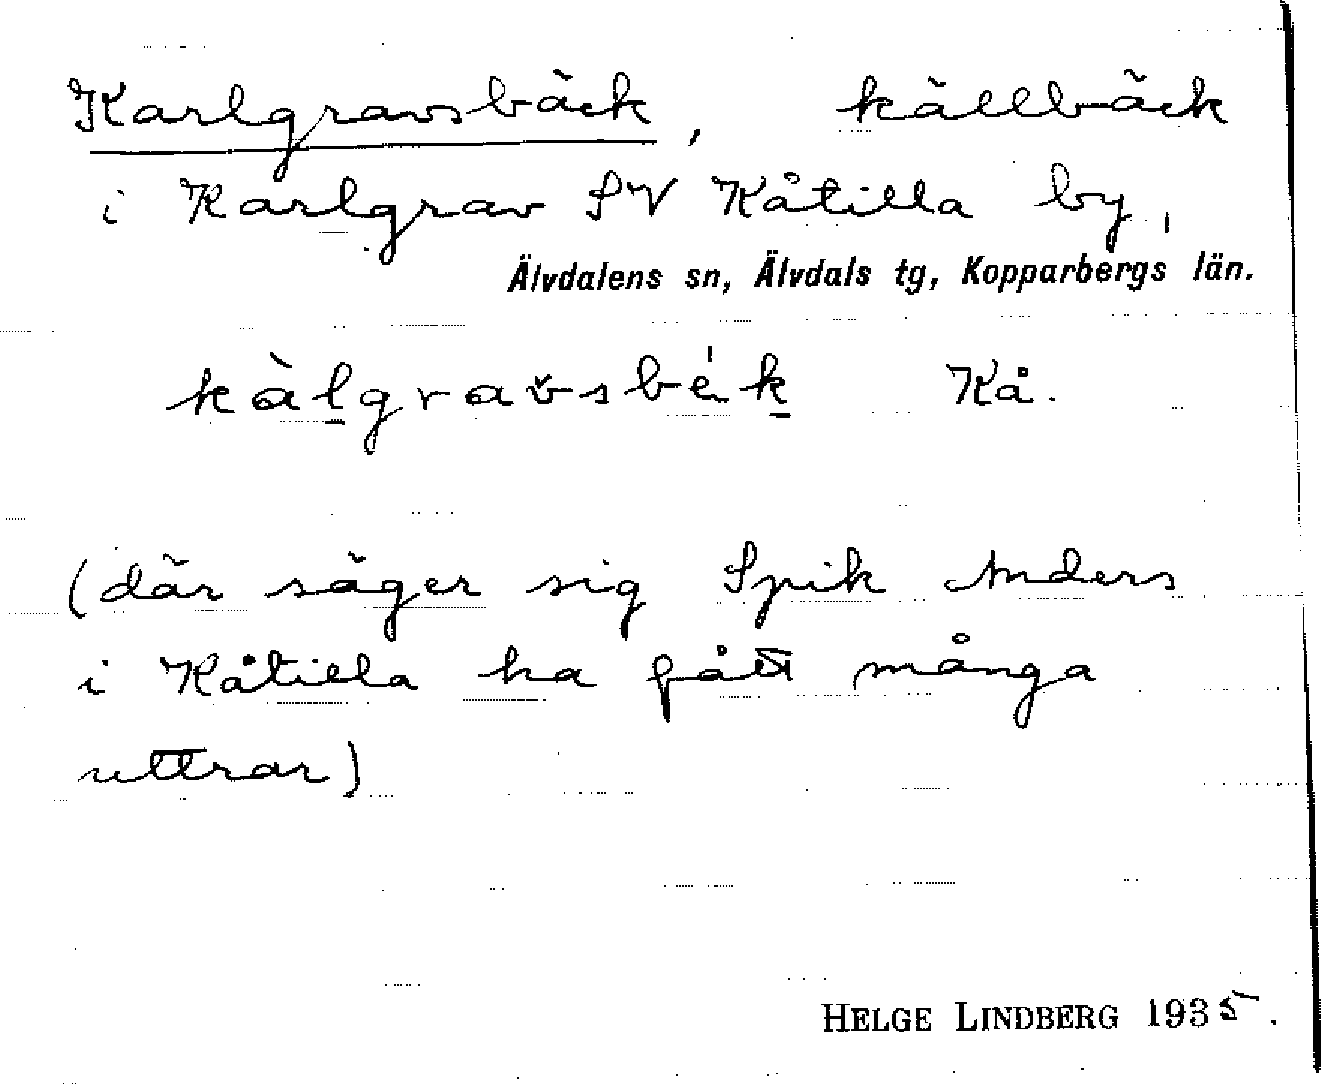 Karlgravsbäck, källbäck
i Karlgrav SV Kåtilla by,
Älvdalens sn, Älvdals tg, Kopparbergs län.
kàlgravsbék Kå.
(där säger sig Spik Anders
i Kåtilla ha fått många
uttrar)
HELGE LINDBERG 1935.